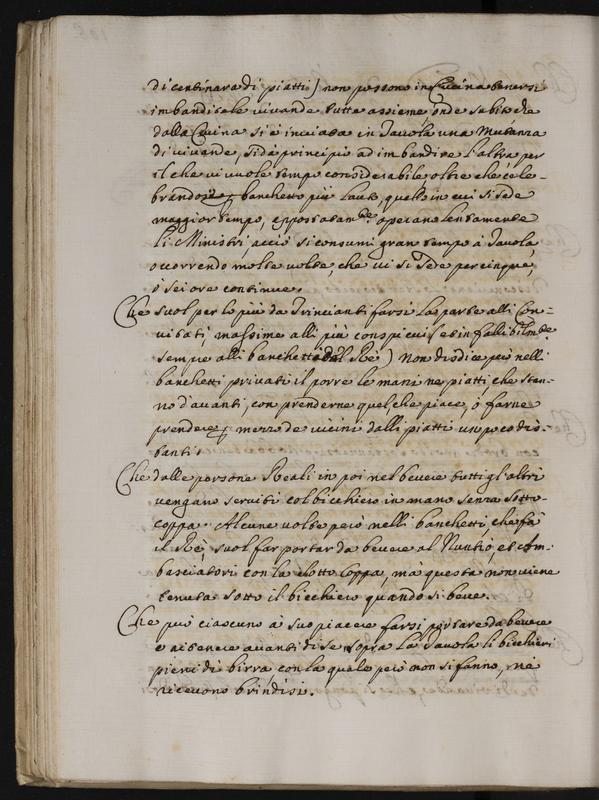 di centinara di piatti) non possono in Cucina tenersi
imbandite le vivande tutte assieme, onde subito che
dalla Cucina si è inviata in Tavola una Mutanza
di vivande, si dà principio ad imbandire l'altra per
il che vi vuole tempo considerabile, oltre che cele-
brandosi banchetto più lauto, quello in cui si sede
maggior tempo, apportatam.te operano lentamente
li Ministri, acciò si consumi gran tempo à Tavola,
occorrendo molte volte, che vi si sede per cinque,
ò sei ore continue.
Che suol per lo più da Trincianti farsi la parte alli Con-
vitati, massime alli più conspicui (et infallibilm.te
sempre alli banchetti del Rè) Non disdice però nelli
banchetti privati il porre le mani ne piatti che stan-
no d'avanti, con prenderne quel che piace, ò farne
prendere p mezzo de vicini dalli piatti un poco dis-
tanti.
Che dalle persone Reali in poi nel bevere tutti gl'altri
vengano serviti col bicchiero in mano senza sotto-
coppa. Alcune volte però nelli banchetti, che fà
il Rè, suol far portar da bevere al Nuntio, et Am-
basciatori con la sotto Coppa, mà questa non viene
tenuta sotto il bicchiero quando si beve.
Che può ciascuno à suo piacere farsi portare da bevere
e ritenere avanti di se sopra la Tavola li bicchieri
pieni di birra con la quale però non si fanno, nè
ricevono brindisi.